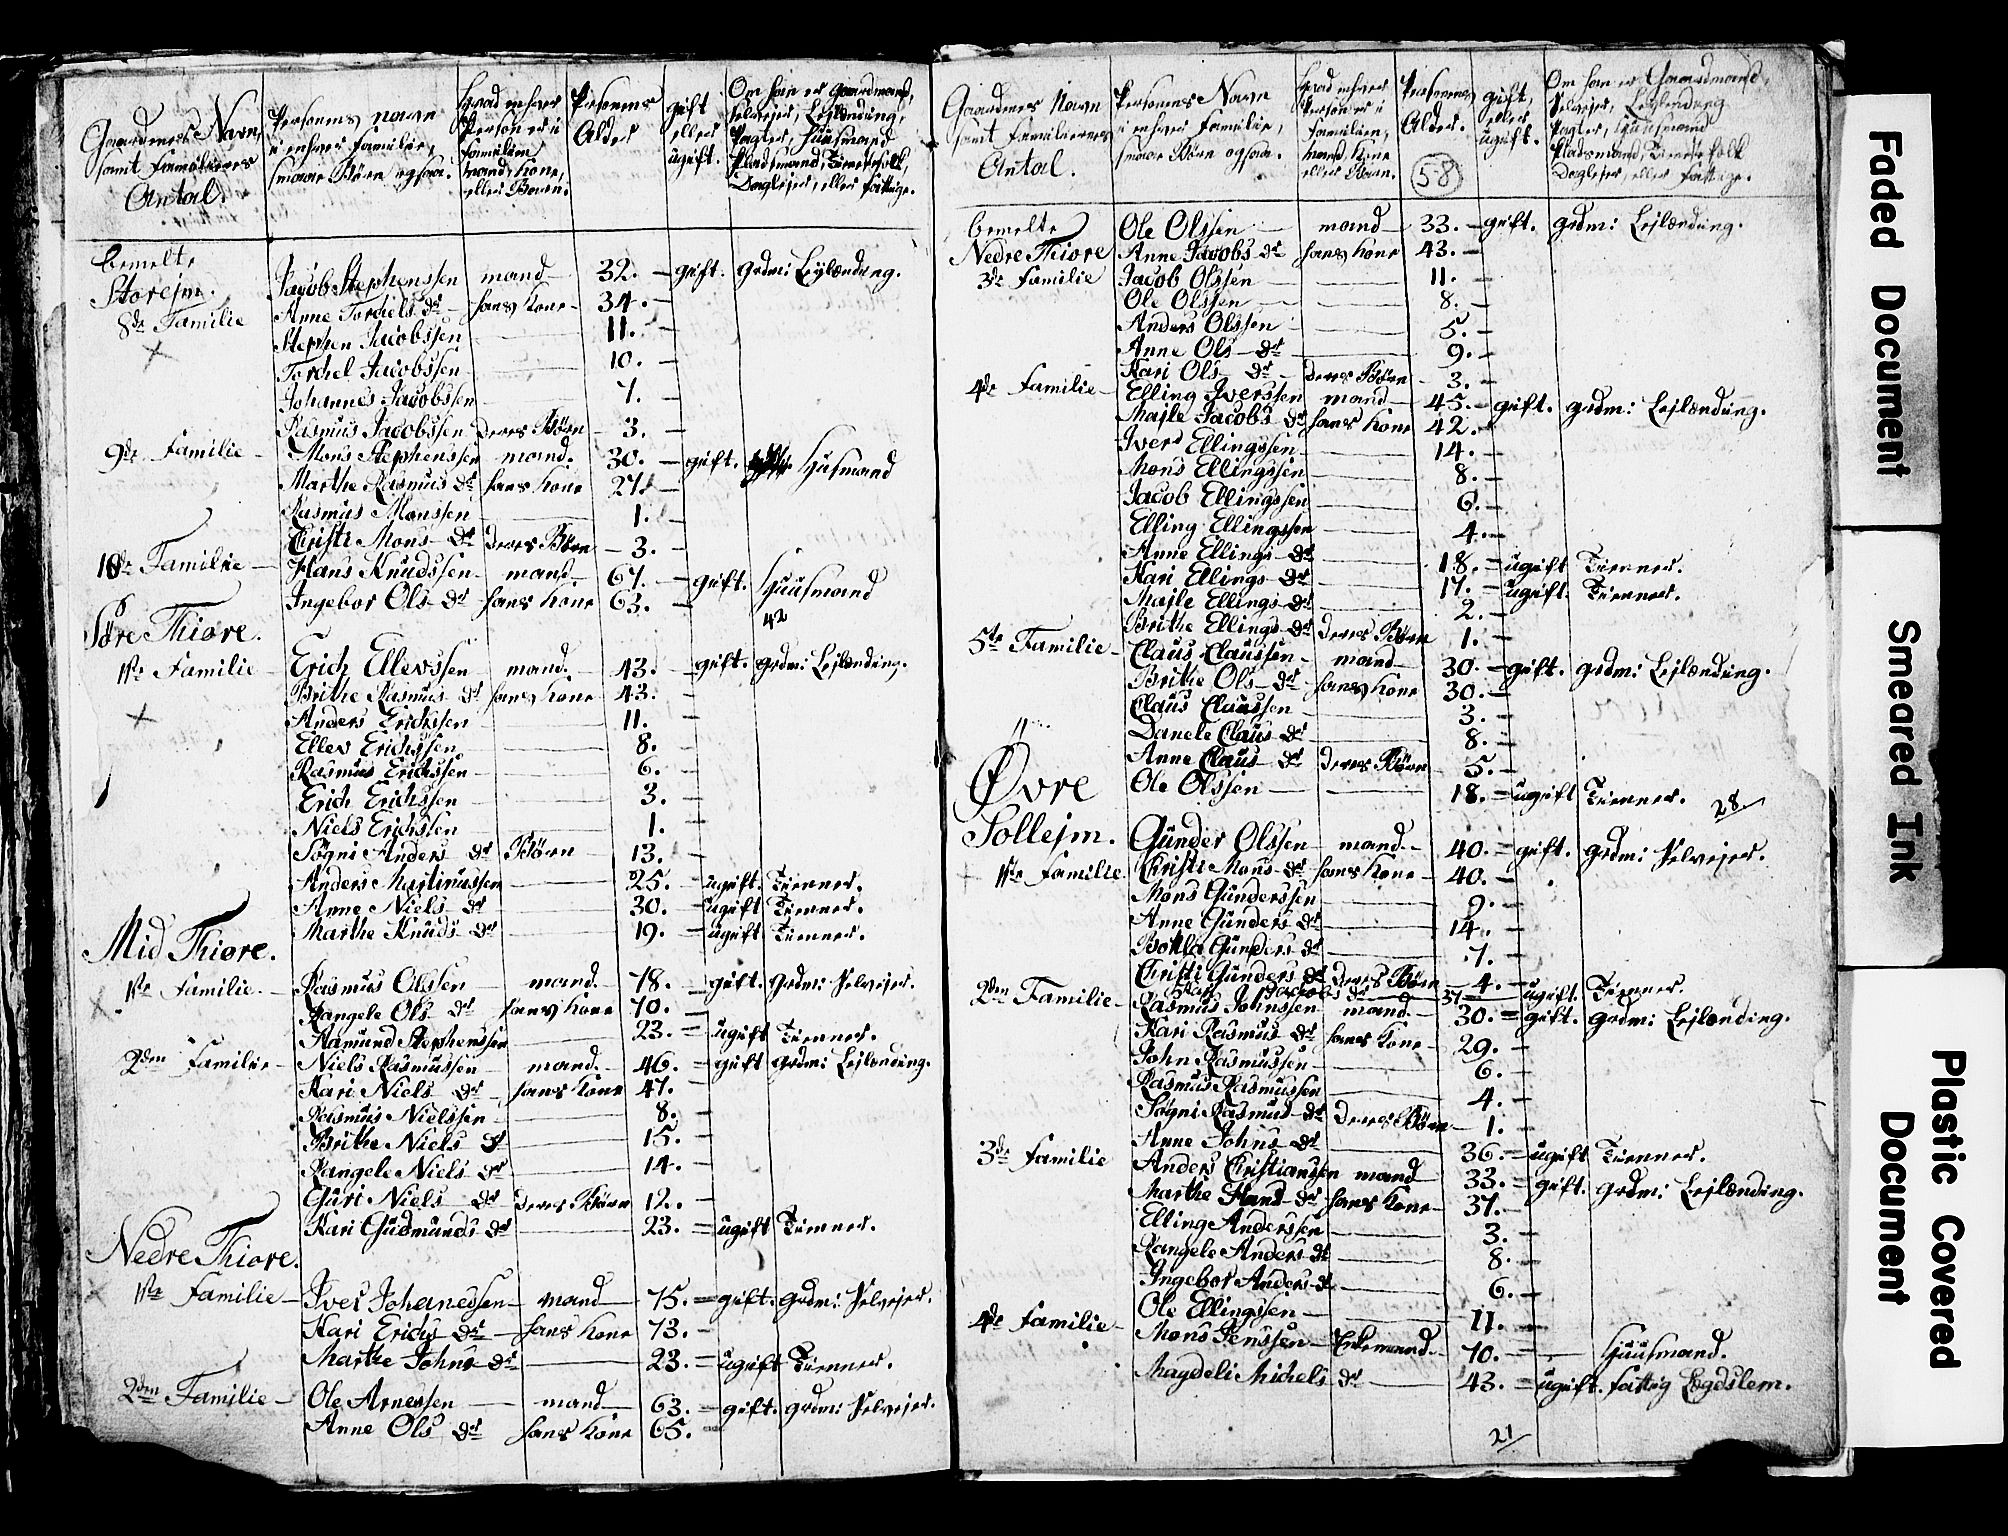 Gaardenes Navn, samt Familiernes Antal.
Personens navn i enhver familie, smaae Børn ogsaa.
hvad enhver Person er i familien mand, kone, eller Barn.
Personens Alder
gift eller ugift.
Om han er Gaardmand, selvejer, Lejlænding, Pagter, Huusmand Pladsmand, Tienestefolk, Daglejer, eller fattige.
bemelte
Storejm.
8de Familie
Jacob Stephenssen mand 32. gift. grdm: Lejlænding.
Anne Torchels Dr hans Kone 34.
Stephen Jacobssen 11.
Torchel Jacobssen 10.
Johannes Jacobssen 7.
Rasmus Jacobssen deres Børn 3.
9de Familie Mons Stephenssen mand. 30. gift. Huusmand
Marthe Rasmus Dr hans Kone 27.
Rasmus Monssen 1.
Christi Mons Dr deres Børn 3.
10de Familie Hans Knudssen mand 67. gift. Huusmand
Ingebor Ols Dr hans Kone 63.
42
Søre Thiore.
1ste Familie Erich Ellevssen mand. 43. gift. grdm: Lejlænding.
Brithe Rasmus Dr hans Kone 43.
Anders Erichssen 11.
Ellev Erichssen 8.
Rasmus Erichssen 6.
Erich Erichssen 3.
Niels Erichssen 1.
Søgni Anders Dr Børn 13.
Anders Martinussen 25. ugift. Tienner.
Anne Niels Dr 30. ugift Tienner.
Marthe Knuds Dr 19. ugift Tienner.
Mid Thiore.
1ste Familie Rasmus Olssen mand 78. gift. grdm: Selvejer.
Rangele Ols Dr hans Kone 70.
Aamund Stephenssen 23. ugift Tienner.
2den Familie Niels Rasmussen mand. 46. gift grdm: Lejlænding.
Kari Niels Dr hans Kone 47.
Rasmus Nielssen 8.
Brithe Niels Dr 15.
Rangele Niels Dr 14.
Guri Niels Dr deres Børn 12.
Kari Gudmunds Dr 23. ugift Tienner.
Nedre Thiore.
1ste Familie Iver Johanessen mand 75. gift. grdm: Selvejer.
Kari Erichs Dr hans Kone 73.
Marthe Johns Dr 23. ugift Tienner.
2den Familie Ole Arnessen mand 63. gift. grdm: Selvejer.
Anne Ols Dr hans Kone 65.
Gaardenes Navn samt Familiernes Antal.
Personens Navn i enhver familie, smaae Børn ogsaa.
hvad enhver Person er i familien, mand, Kone eller Barn.
Personens Alder.
58
gift, eller ugift.
Om han er Gaardmand, Selvejer, Lejlænding Pagter, Huusmand Pladsmand, Tienestefolk Daglejer, eller fattige.
bemelte
Nedre Thiore
3de Familie
Ole Olssen mand 33. gift. grdm: Lejlænding.
Anne Jacobs Dr hans Kone 43.
Jacob Olssen 11.
Ole Olssen 8.
Anders Olssen 5.
Anne Ols Dr 9.
Kari Ols Dr deres Børn 3.
4de Familie Elling Iverssen mand 45. gift. grdm: Lejlænding.
Majle Jacobs Dr hans Kone 42.
Iver Ellingssen 14.
Mons Ellingssen 8.
Jacob Ellingssen 6.
Elling Ellingssen 4.
Anne Ellings Dr 18. ugift Tienner.
Kari Ellings Dr 17. ugift. Tienner.
Majle Ellings Dr 2.
Brithe Ellings Dr deres Børn 1.
5te Familie Claus Claussen mand 30. gift. grdm: Lejlænding.
Brithe Ols Dr hans Kone 30.
Claus Claussen 3.
Danele Claus Dr 8.
Anne Claus Dr deres Børn 5.
Ole Olssen 18. ugift Tienner. 28
Øvre
Sollejm.
Gunder Olssen mand 40. gift. grdm: Selvejer.
1ste Familie Christi Mons Dr hans Kone 40.
Mons Gunderssen 9.
Anne Gunders Dr 14.
Botila Gunders Dr 7.
Christi Gunders Dr deres Børn 4.
Jacobs Dr 37 ugift. Tienner.
2den Familie Rasmus Johnssen mand 30. gift. grdm: Lejlænding.
Kari Rasmus Dr hans Kone 29.
John Rasmussen 6.
Rasmus Rasmussen 4.
Søgni Rasmus Dr deres Børn 1.
Anne Johns Dr 36. ugift Tienner.
3de Familie Anders Christianssen mand 33. gift. grdm: Lejlænding.
Marthe Dr hans Kone 37.
Elling Anderssen 3.
Rangele Anders Dr 8.
Ingebor Anders Dr 6.
Ole Ellingssen 11.
4de Familie Mons Jenssen Enkemand 70. Huusmand.
Magdeli Michels Dr 43. ugift. fattig Lægdslem.
21
Faded Document
Smeared Ink
Plastic Covered Document